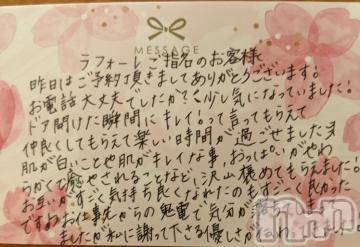 MESSAGE
ラフォーレご指名のお客様
昨日はご予約頂きましてありがとうございます!
お電話大丈夫でしたか?少し気になっていました!
ドア開けた瞬間にキレイ!って言ってもらえて
仲良くしてもらえて楽しい時間が過ごせました
肌が白いことや肌がキレイな事、おっぱいがやわ
らかくて癒やされることなど、沢山褒めてもらえました。
お互いがすごく気持ち良くなれたのもすごく良かった
ですねお仕事先からの鬼電で気分が
ましたが私に謝って下さる優しさが